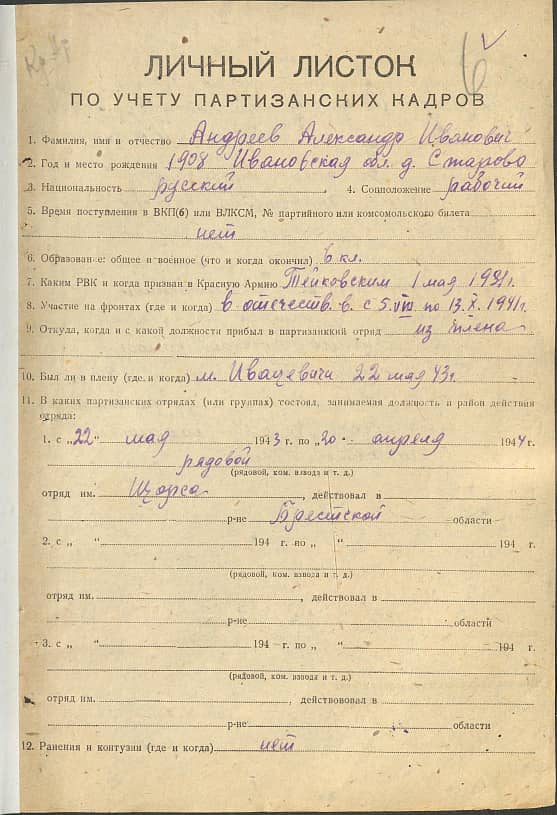 6
ЛИЧНЫЙ ЛИСТОК
ПО УЧЕТУ ПАРТИЗАНСКИХ КАДРОВ
1. Фамилия, имя и отчество Андреев Александр Иванович
2. Год и место рождения 1908 Ивановская обл. д. Старово
3. Национальность русский, 4. Соцположение рабочий
5. Время поступления в ВКП(б) или ВЛКСМ, № партийного или комсомольского билета
нет
6. Образование: общее и военное (что и когда окончил) 6 кл.
7. Каким РВК и когда призван в Красную Армию Тейковским 1 мая 1931г.
8. Участие на фронтах (где и когда) в отечеств. в. с 5.VIII по 13.X.1941г.
9. Откуда, когда и с какой должности прибыл в партизанкий отряд из плена
10. Был ли в плену (где и когда) м. Ивацевичи 22 мая 43г.
11. В каких партизанских отрядах (или группах) состоял, занимаемая должность и район действия
отряда:
1. с „22“ мая 1943 г. по „20“ апреля 1944 г.
рядовой
(рядовой, ком. взвода и т. д.)
отряд им. Щорса, действовал в
р-не Брестской области
2. с „ “ 194 г. по „ “ 194 г.
(рядовой, ком. взвода и т. д.)
отряд им. , действовал в
р-не области
3. с „ “ 194 г. по „ “ 194 г.
(рядовой, ком. взвода и т. д.)
отряд им. , действововал в
р-не области
12. Ранения и контузии (где и когда) нет